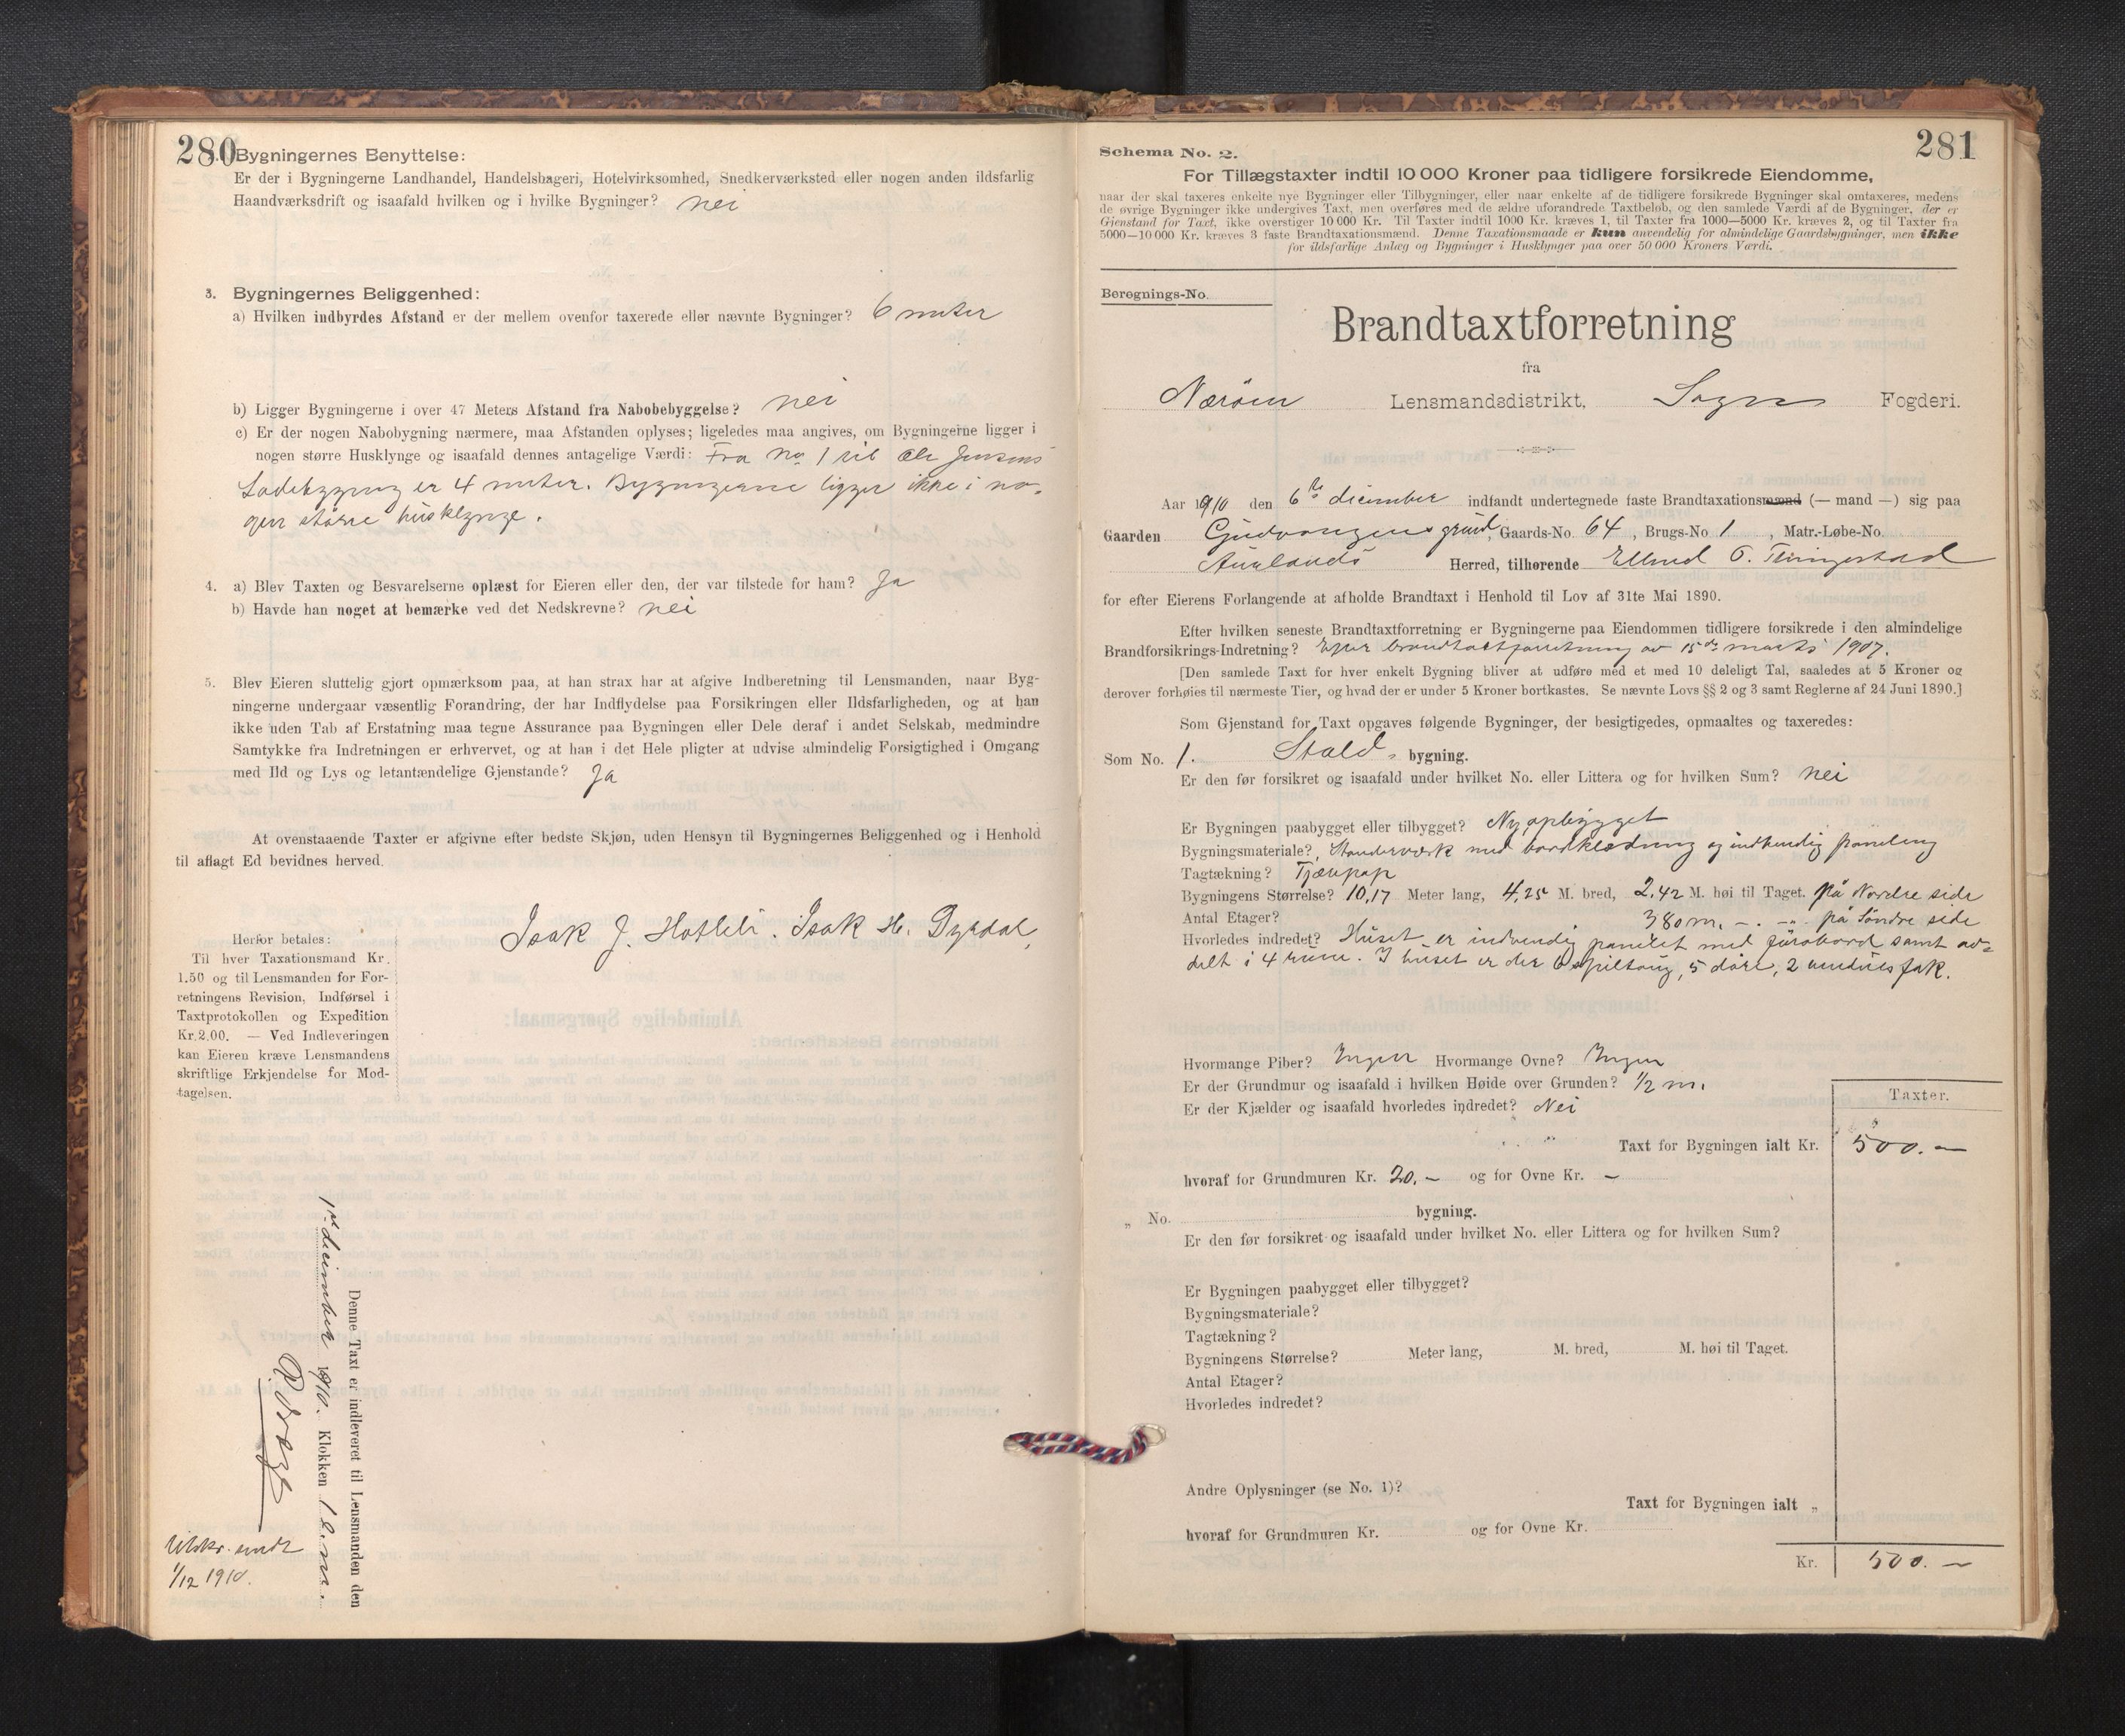 280
Bygningernes Benyttelse:
Er der i Bygningerne Landhandel, Handelsbageri, Hotelvirksomhed, Snedkerværksted eller nogen anden ildsfarlig
Haandværksdrift og isaafald hvilken og i hvilke Bygninger? nei
3. Bygningernes Beliggenhed:
a) Hvilken indbyrdes Afstand er der mellem ovenfor taxerede eller nævnte Bygninger? 6 meter
b) Ligger Bygningerne i over 47 Meters Afstand fra Nabobebyggelse? nei
c) Er der nogen Nabobygning nærmere, maa Afstanden oplyses; ligeledes maa angives, om Bygningerne ligger i
nogen større Husklynge og isaafald dennes antagelige Værdi: Fra no 1 til Ole Jensens
Ladebygning er 4 meter. Bygningerne ligger ikke i no-
gen større husklynge.
4. a) Blev Taxten og Besvarelserne oplæst for Eieren eller den, der var tilstede for ham? Ja
b) Havde han noget at bemærke ved det Nedskrevne? nei
5. Blev Eieren sluttelig gjort opmærksom paa, at han strax har at afgive Indberetning til Lensmanden, naar Byg-
ningerne undergaar væsentlig Forandring, der har Indflydelse paa Forsikringen eller Ildsfarligheden, og at han
ikke uden Tab af Erstatning maa tegne Assurance paa Bygningen eller Dele deraf i andet Selskab, medmindre
Samtykke fra Indretningen er erhvervet, og at han i det Hele pligter at udvise almindelig Forsigtighed i Omgang
med Ild og Lys og letantændelige Gjenstande? Ja
At ovenstaaende Taxter er afgivne efter bedste Skjøn, uden Hensyn til Bygningernes Beliggenhed og i Henhold
til aflagt Ed bevidnes herved.
Isak J. Hotleli. Isak H. Dyrdal,
Herfor betales:
Til hver Taxationsmand Kr.
1.50 og til Lensmanden for For-
retningens Revision, Indførsel i
Taxtprotokollen og Expedition
Kr. 2.00. — Ved Indleveringen
kan Eieren kræve Lensmandens
skriftlige Erkjendelse for Mod-
tagelsen.
Denne Taxt er indleveret til Lensmanden den
1ste december 1910. Klokken 1 e.m.
Utskr. sendt
1/12 1910.
281
Schema No. 2.
For Tillægstaxter indtil 10 000 Kroner paa tidligere forsikrede Eiendomme,
naar der skal taxeres enkelte nye Bygninger eller Tilbygninger, eller naar enkelte af de tidligere forsikrede Bygninger skal omtaxeres, medens
de øvrige Bygninger ikke undergives Taxt, men overføres med de ældre uforandrede Taxtbeløb, og den samlede Værdi af de Bygninger, der er
Gjenstand for Taxt, ikke overstiger 10 000 Kr. Til Taxter indtil 1000 Kr. kræves 1, til Taxter fra 1000—5000 Kr. kræves 2, og til Taxter fra
5000—10 000 Kr. kræves 3 faste Brandtaxationsmænd. Denne Taxationsmaade er kun anvendelig for almindelige Gaardsbygninger, men ikke
for ildsfarlige Anlæg og Bygninger i Husklynger paa over 50 000 Kroners Værdi.
Beregnings-No.
Brandtaxtforretning
fra
Nærøen Lensmandsdistrikt, Sogn Fogderi.
Aar 1910 den 6te december indfandt undertegnede faste Brandtaxationsmænd (— mand —) sig paa
Gaarden Gudvangens grund, Gaards-No. 64, Brugs-No 1, Matr.-Løbe-No.
Aurlands Herred, tilhørende Ellend O. Tungestad
for efter Eierens Forlangende at afholde Brandtaxt i Henhold til Lov af 31te Mai 1890.
Efter hvilken seneste Brandtaxtforretning er Bygningerne paa Eiendommen tidligere forsikrede i den almindelige
Brandforsikrings-Indretning? Efter brandtaxtforretning av 15de marts 1907.
[Den samlede Taxt for hver enkelt Bygning bliver at udføre med et med 10 deleligt Tal, saaledes at 5 Kroner og
derover forhøies til nærmeste Tier, og hvad der er under 5 Kroner bortkastes. Se nævnte Lovs §§ 2 og 3 samt Reglerne af 24 Juni 1890.]
Som Gjenstand for Taxt opgaves følgende Bygninger, der besigtigedes, opmaaltes og taxeredes:
Som No. 1. Stald- bygning.
Er den før forsikret og isaafald under hvilket No. eller Littera og for hvilken Sum? nei
Er Bygningen paabygget eller tilbygget? Nyopbygget
Bygningsmateriale? Standerværk med bordklædning og indvendig paneling
Tagtækning? Tjærepap
Bygningens Størrelse? 10,17 Meter lang, 4,25 M. bred, 2,42 M. høi til Taget. på Nordre side
Antal Etager? 380 m. -. -„- på Søndre side
Hvorledes indredet? Huset er indvendig panelet med furobord samt av-
delt i 4 rume. I huset er der 6 spiltoug, 5 døre, 2 vinduesfak.
Hvormange Piber? Ingen Hvormange Ovne? Ingen
Er der Grundmur og isaafald i hvilken Høide over Grunden? 1/2 m.
Er der Kjælder og isaafald hvorledes indredet? Nei
Taxter.
Taxt for Bygningen ialt Kr. 500.—
hvoraf for Grundmuren Kr. 20.— og for Ovne Kr. —
„ No. bygning.
Er den før forsikret og isaafald under hvilket No. eller Littera og for hvilken Sum?
Er Bygningen paabygget eller tilbygget?
Bygningsmateriale?
Tagtækning?
Bygningens Størrelse? Meter lang, M. bred, M. høi til Taget.
Antal Etager?
Hvorledes indredet?
Andre Oplysninger (se No. 1)?
Taxt for Bygningen ialt „
hvoraf for Grundmuren Kr. og for Ovne Kr.
Kr. 500.—